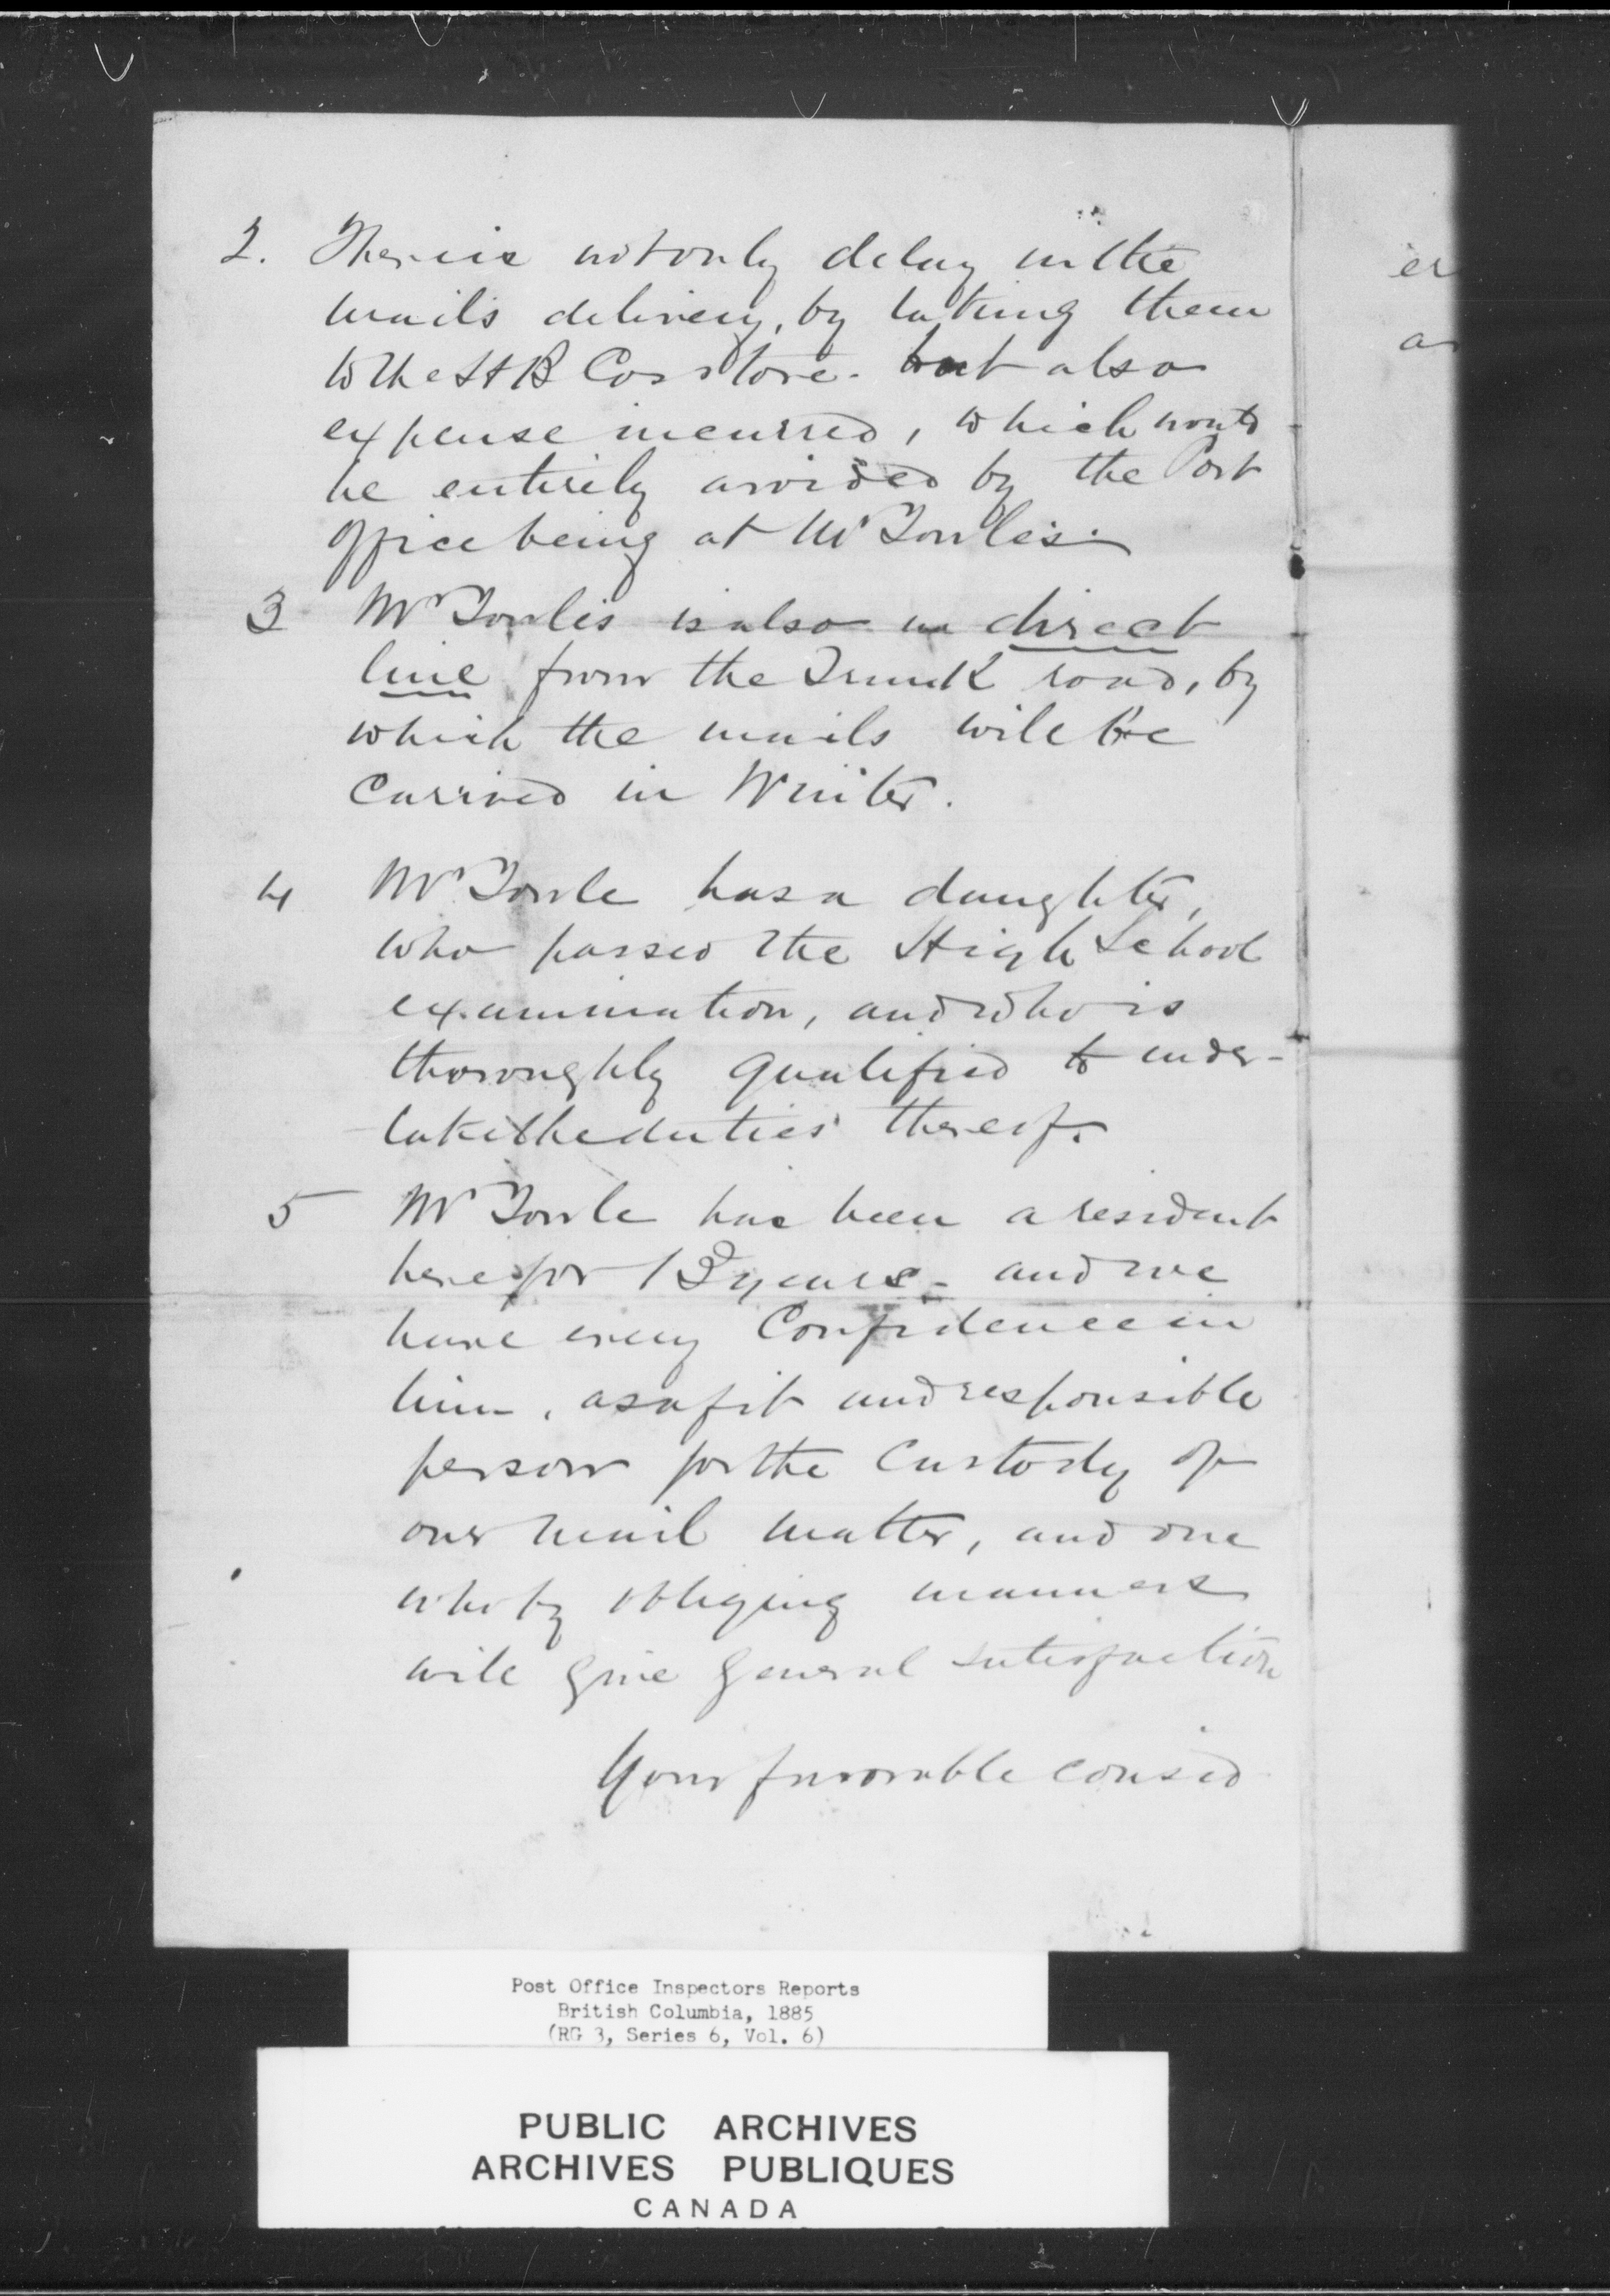 2. There is not only delay in the
mails delivery, by taking them
to the H B Cos store. but also
expense incurred, which would
be entirely avoided by the Post
Office being at Mr Towles.
3 Mr Towles is also in direct
line from the Trunk road, by
which the mails will be
carried in Winter.
4 Mr Towle has a daughter,
who passed the High School
examination, and who is
thoroughly qualified to under-
take the duties thereof.
5 Mr Towle has been a resident
here for 13 years - and we
have every Confidence in
him, as a fit and responsible
person for the Custody of
our mail matter, and one
who by obliging manners
will give general satisfaction
Your favorable consid
er
a
Post Office Inspectors Reports
British Columbia, 1885
(RG 3, Series 6, Vol. 6)
PUBLIC ARCHIVES
ARCHIVES PUBLIQUES
CANADA